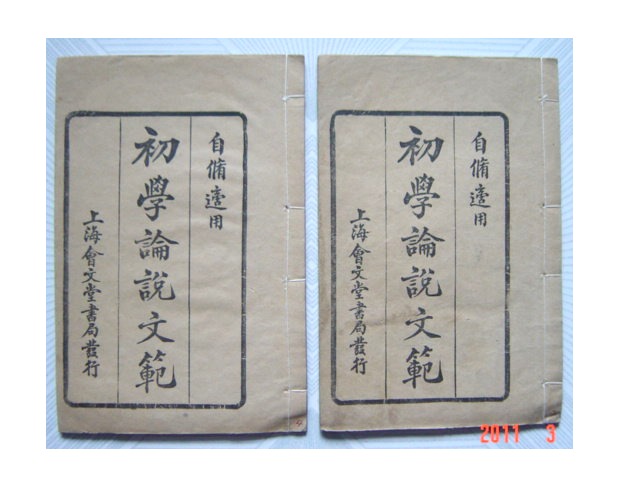 自脩適用
初學論說文範
上海會文堂書局發行
自脩適用
初學論說文範
上海會文堂書局發行
2011 3